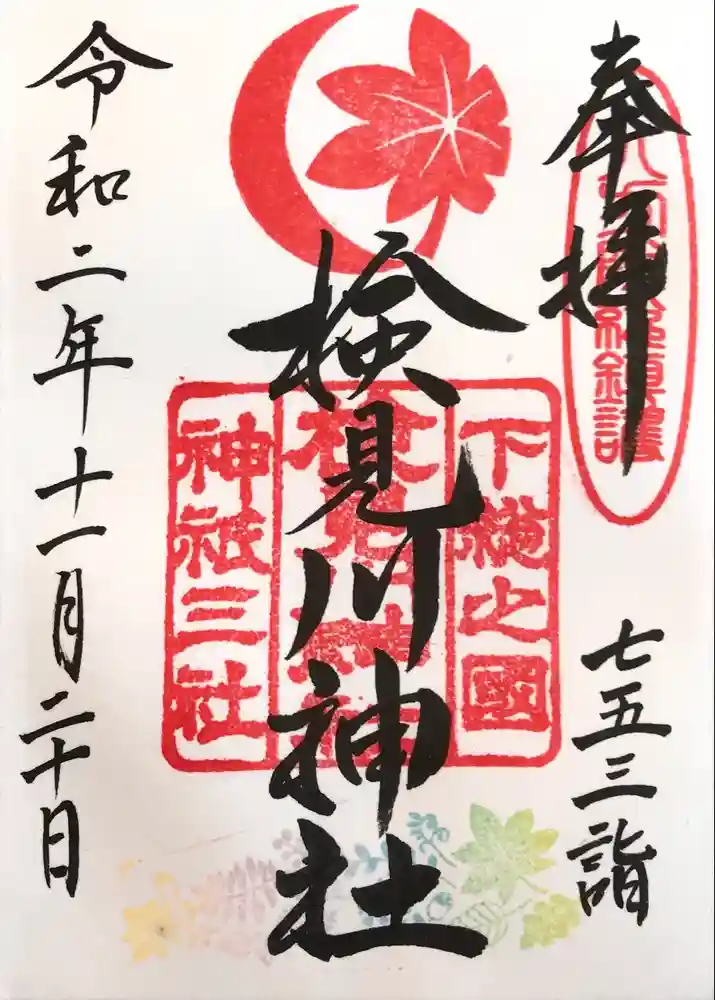 奉拝
七五三詣
下總之國
検見川神社
神祇三社
検見川神社
令和二年十一月二十日